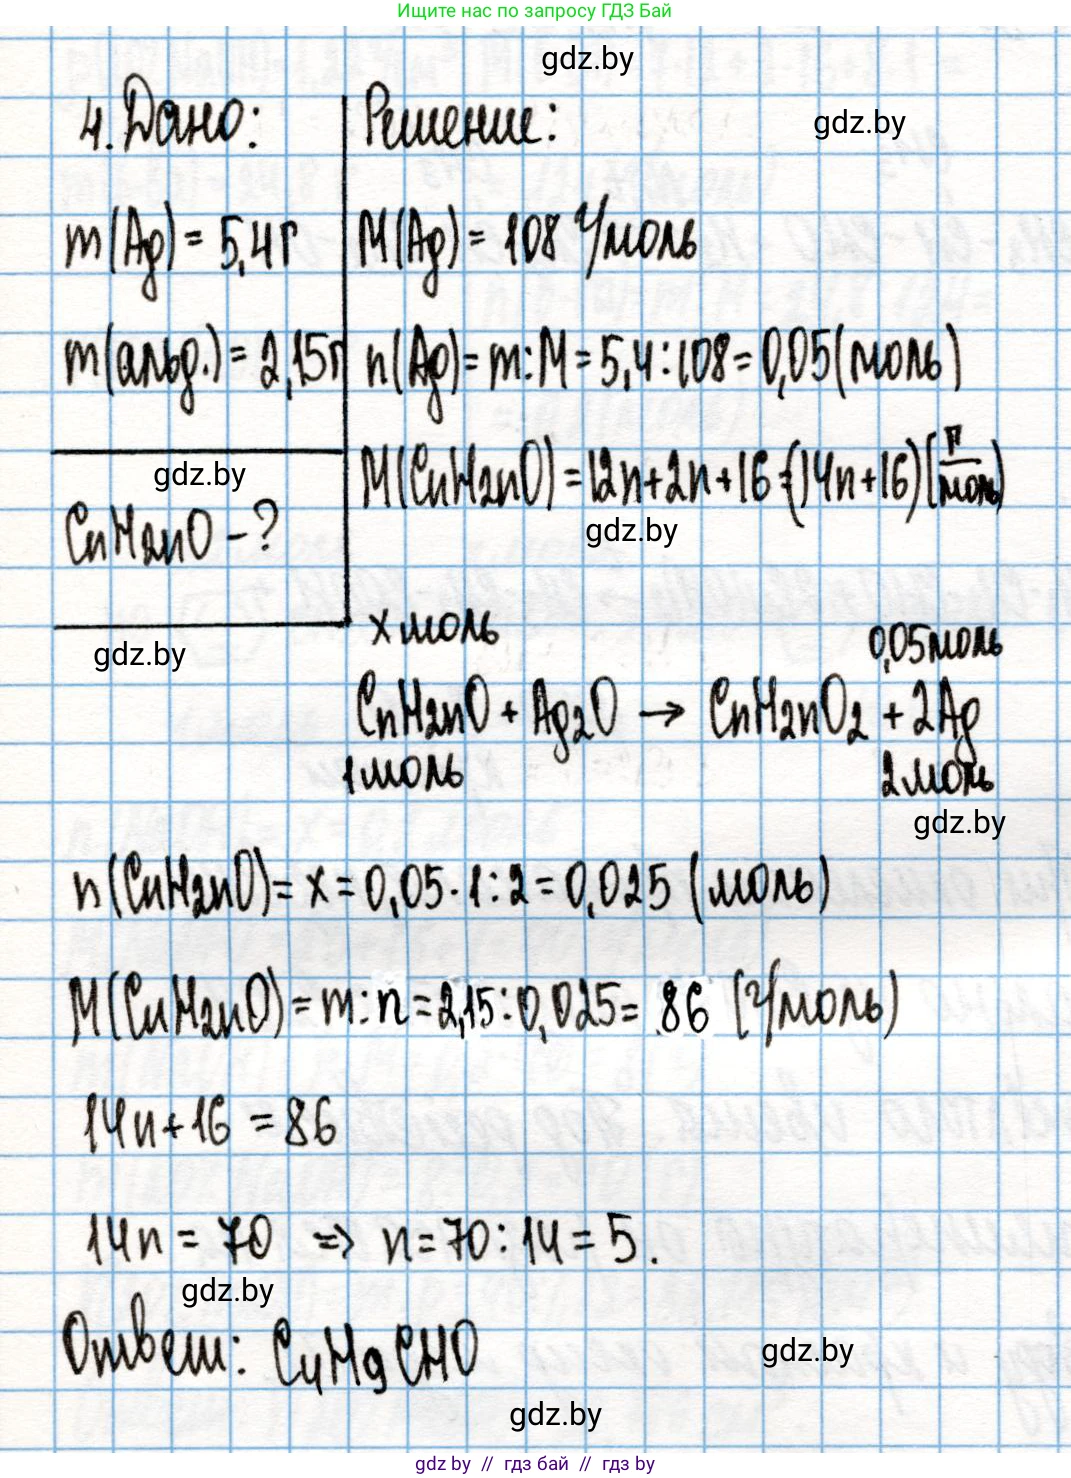 Ищите нас по запросу ГДЗ Бай
gdz.by
4. Дано:
Решение:
gdz.by
m(Ag) = 5,4г
M(Ag) = 108 г/моль
m(альд.) = 2,15г
n(Ag) = m:M = 5,4:108 = 0,05(моль)
gdz.by
M(CnH2nO) = 12n+2n+16 = (14n+16)(г/моль)
gdz.by
CnH2nO - ?
gdz.by
x моль
0,05моль
CnH2nO + Ag2O → CnH2nO2 + 2Ag
1моль
2моль
gdz.by
n(CnH2nO) = x = 0,05·1:2 = 0,025 (моль)
M(CnH2nO) = m:n = 2,15:0,025 = 86 (г/моль)
14n+16 = 86
14n = 70 ⇒ n=70:14=5.
gdz.by
Ответ: C4H9CHO
gdz.by
gdz.by
gdz by // гдз бай // гдз by